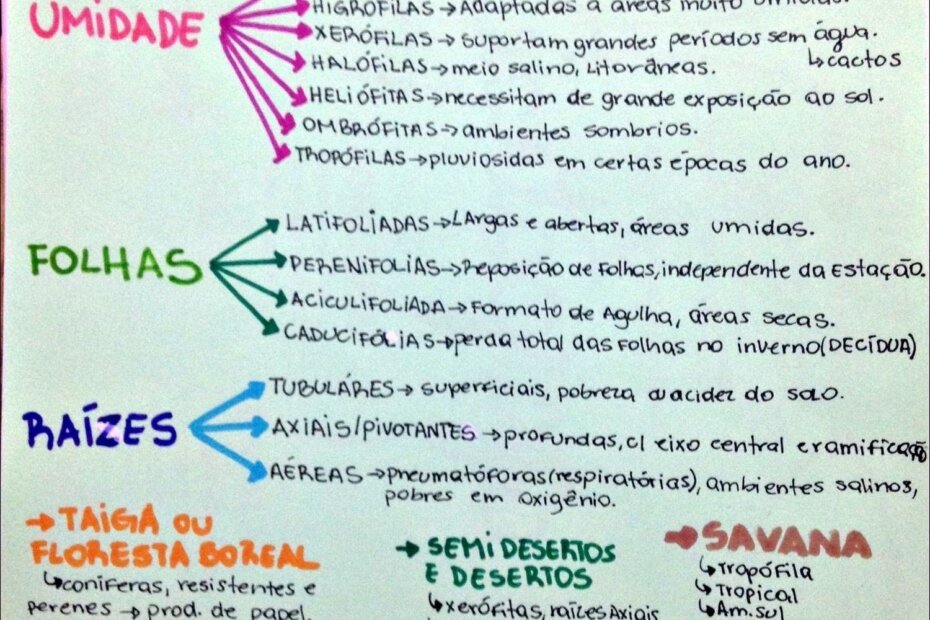 UMIDADE
HIGRÓFILAS → Adaptadas a áreas muito
XERÓFILAS → suportam grandes períodos sem água.
↳ cactos
HALÓFILAS → meio salino, litorâneas.
HELIÓFITAS → necessitam de grande exposição ao sol.
OMBRÓFITAS → ambientes sombrios.
TROPÓFILAS → pluviosidas em certas épocas do ano.
FOLHAS
LATIFOLIADAS → LArgas e abertas, áreas umidas.
PERENIFOLIAS → Reposição de Folhas, independente da Estação.
ACICULIFOLIADA → Formato de Agulha, áreas secas.
CADUCIFÓLIAS → perda total das Folhas no inverno (DECÍDUA)
RAÍZES
TUBULÁRES → superficiais, pobreza ou acidez do solo.
AXIAIS/PIVOTANTES → profundas, c/ eixo central e ramificação
AÉREAS → pneumatóforas (respiratórias), ambientes salinos,
pobres em oxigênio.
→ TAIGA OU
FLORESTA BOREAL
↳ coníferas, resistentes e
perenes → prod. de papel.
→ SEMI DESERTOS
E DESERTOS
↳ xerófitas, raízes Axiais
→ SAVANA
↳ Tropófila
↳ Tropical
↳ Am. sul